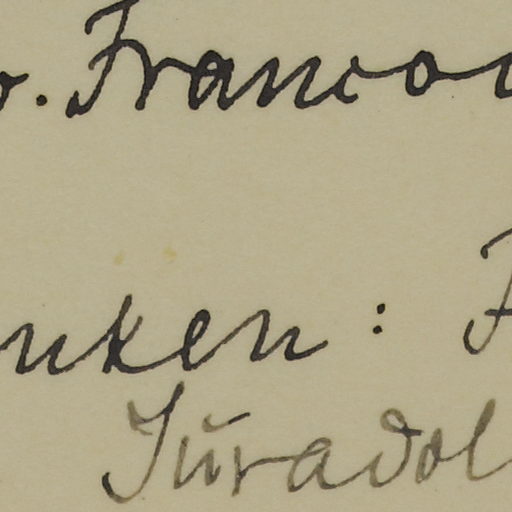 v. Francon
nken: F
Juradol